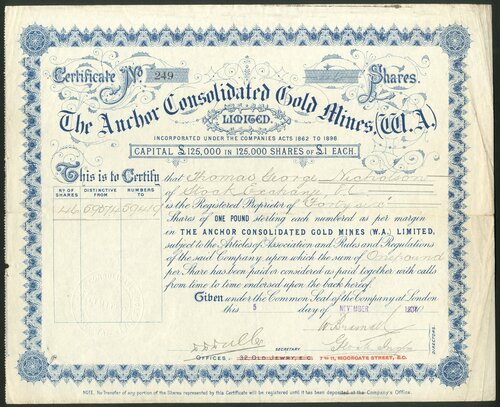 Certificate No 249 Shares.
The Anchor Consolidated Gold Mines, (W.A.)
LIMITED.
INCORPORATED UNDER THE COMPANIES ACTS 1862 TO 1898.
CAPITAL £125,000 IN 125,000 SHARES OF £1 EACH.
This is to Certify that Thomas George Nicholson
of Stock Exchange
is the Registered Proprietor of
No OF SHARES DISTINCTIVE FROM NUMBERS TO
Shares of ONE POUND sterling each numbered as per margin
in THE ANCHOR CONSOLIDATED GOLD MINES (W.A.) LIMITED,
subject to the Articles of Association and Rules and Regulations
of the said Company, upon which the sum of One pound
per Share has been paid or considered as paid together with calls
from time to time endorsed upon the back hereof.
Given under the Common Seal of the Company at London
this 5 day of NOVEMBER
DIRECTORS.
SECRETARY
OFFICES: 32 OLD JEWRY, E.C. 7 to 11, MOORGATE STREET, E.C.
NOTE. No Transfer of any portion of the Shares represented by this Certificate will be registered until it has been deposited at the Company's Office.